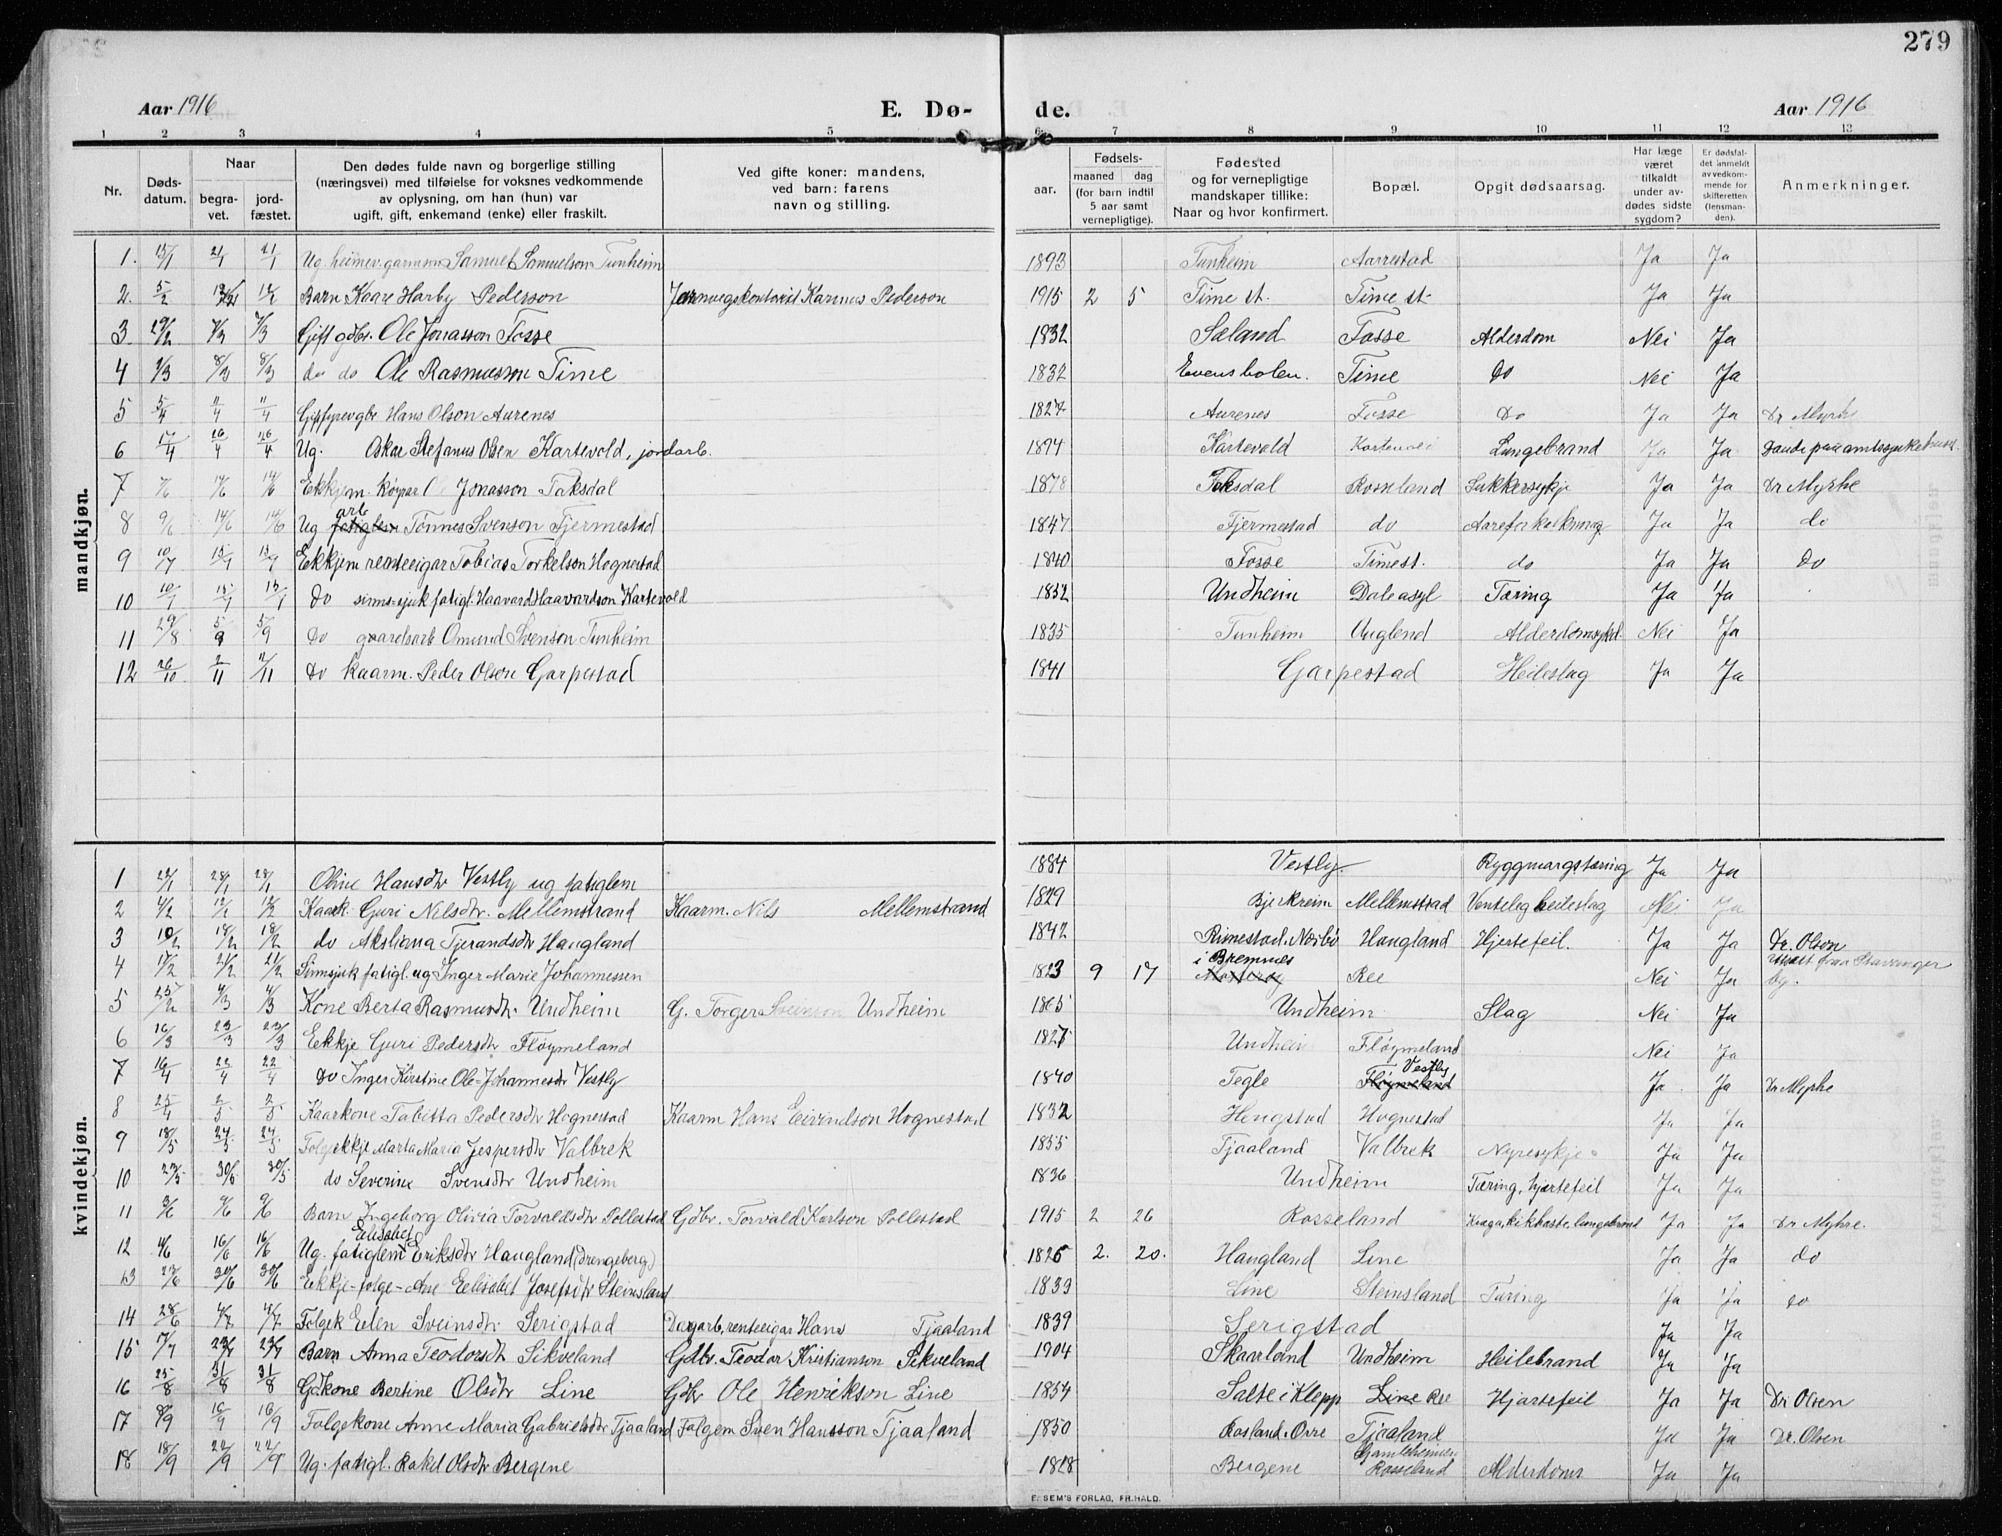 279
Aar 1916 E. Dø- de. Aar 1916
1 2 3 4 5 6 7 8 9 10 11 12 13
Nr. Døds-datum. Naar begra-vet. jord-fæstet. Den dødes fulde navn og borgerlige stilling (næringsvei) med tilføielse for voksnes vedkommende av oplysning, om han (hun) var ugift, gift, enkemand (enke) eller fraskilt. Ved gifte koner: mandens, ved barn: farens navn og stilling. aar. Fødsels- maaned dag (for barn indtil 5 aar samt vernepligtige). Fødested og for vernepligtige mandskaper tillike: Naar og hvor konfirmert. Bopæl. Opgit dødsaarsag. Har læge været tilkaldt under av-dødes sidste sygdom? Er dødsfal-det anmeldt av vedkom-mende for skifteretten (lensman-den). Anmerkninger.
mandkjøn.
1. 15/1 21/1 21/1 Ug. Samuel Samuelson Tunheim 1893 Tunheim Aarrestad Ja Ja
2. 5/2 12/2 Barn Kaare Harby Pederson Jernvegskontorist Pederson 1915 2 5 Time st. Time st. Ja Ja
3 29/2 7/3 7/3 Gift gdbr. Ole Jonasson Fosse 1832 Saland Fosse Alderdom Nei Ja
4 1/3 8/3 8/3 do do Ole Rasmusson Time 1832 Time Do Nei Ja
5 5/4 11/4 11/4 Hans Olson Aurenes 1827 Aurenes Fosse Do Ja Ja Dr Myrhe
6 17/4 26/4 26/4 Ug. Oskar Stefanus Olsen Kartevold, jordarb. 1894 Kartevold Kartevold Lungebrand Ja Ja
7 7/6 14/6 14/6 Ekkjem. Jonasson Taksdal 1878 Taksdal Rosseland Sukkersykje Ja Ja Dr Myrhe
8 9/6 14/6 14/6 Ug arb Tønnes Svenson Tjermestad 1847 Tjermestad do Aareforkalkning Ja Ja do
9 10/7 15/7 15/7 Ekkjem renteeigar Tobias Torkelson Hognestad 1840 Fosse Time st. do Ja Ja Do
10 10/7 15/7 15/7 Do sinnssjuk fatigl. Haavard Haavardson Kartevold 1832 Undheim Dale asyl Tæring Ja Ja
11 29/8 5/9 5/9 Do Omund Svenson Tunheim 1835 Tunheim Nei Ja
12 26/10 2/11 2/11 Do kaarm. Peder Olson Garpestad 1841 Garpestad Heileslag Ja Ja
kvindekjøn.
1 28/1 28/1 Oline Hansdtr Vestly ug fatiglem 1884 Vestly. Ryggmargstæring Ja Ja
2 4/2 12/2 12/2 Kaark. Guri Nilsdtr. Mellemstrand Kaarm. Nils Mellemstrand 1829 Bjerkreim Mellemstrad heileslag Nei Ja
3 10/2 18/2 18/2 do Aksliana Tjerandsdtr Haugland 1842 Rimestad. Nærbø Haugland Hjertefeil. Ja Ja Dr. Olson
4 17/2 21/2 21/2 Sinnsjuk fatigl. ug Inger Marie Johannessen 1823 9 17 i Bremnes Ree Nei Ja fraa Stavanger by.
5 25/2 4/3 4/3 Kone Berta Rasmusdtr. Undheim G. Torger Sveinson Undheim 1865 Undheim Slag Nei Ja
6 16/3 23/3 23/3 Ekkje Guri Pedersdtr Fløymeland 1827 Undheim Fløymeland Nei Ja
7 16/4 22/4 22/4 do Inger Kirstine Ole-Johannesdtr Vestly 1840 Tegle Fløymeland Vestly Ja Ja Dr Myrhe
8 25/4 2/5 2/5 Kaarkone Tabitta Pedersdtr Hognestad Kaarm Hans Eivindson Hognestad 1832 Hognestad Ja Ja
9 18/5 24/5 24/5 Folgekkje Marta Maria Jespersdtr Valbrek 1855 Tjaaland Valbrek Nyresykje Ja Ja
10 23/5 30/5 30/5 do Severine Svensdtr Undheim 1836 Undheim Tæring, hjertefeil Ja Ja
11 3/6 9/6 9/6 Barn Ingeborg Olivia Torvaldsdtr Pollestad Gdbr. Torvald Karlson Pollestad 1915 2 26 Rosseland kikhoste, lungebrand Ja Ja Dr Myhre.
12 4/6 16/6 16/6 Ug. fatiglem Elisabet Eriksdtr Haugland (Drengeberg) 1826 2. 20. Haugland Line Ja Ja do
13 23/6 30/6 30/6 Ekkje-folge- Ane Eelisabet Josefsdtr Steinsland 1839 Line Steinsland Tæring Ja Ja do
14 28/6 4/7 4/7 Folgek Eelen Sveinsdtr Serigstad Dagarb, renteeigar Hans Tjaaland 1839 Serigstad Ja Ja
15 17/7 23/7 23/7 Barn Anna Teodorsdtr Sikveland Gdbr. Teodor Kristianson Sikveland 1904 Skaarland Undheim Heilebrand Ja Ja
16 25/8 31/8 31/8 Gdkone Bertine Olsdtr Line Gdbr Ole Henrikson Line 1854 Salte i Klepp Line Ree Hjartefeil Ja Ja Dr Olsen
17 8/9 16/9 16/9 Folgekone Anne Maria Gabrielsdtr Tjaaland Folgem Sven Hansson Tjaaland 1850 Rosland. Orre Tjaaland Ja Ja Dr. Olsen
18 18/9 22/9 22/9 Ug. fatigl. Rakel Olsdtr Bergene 1828 Bergene Gamleheimen Rosseland Alderdoms Ja Ja
E. SEM'S FORLAG, FR.HALD.